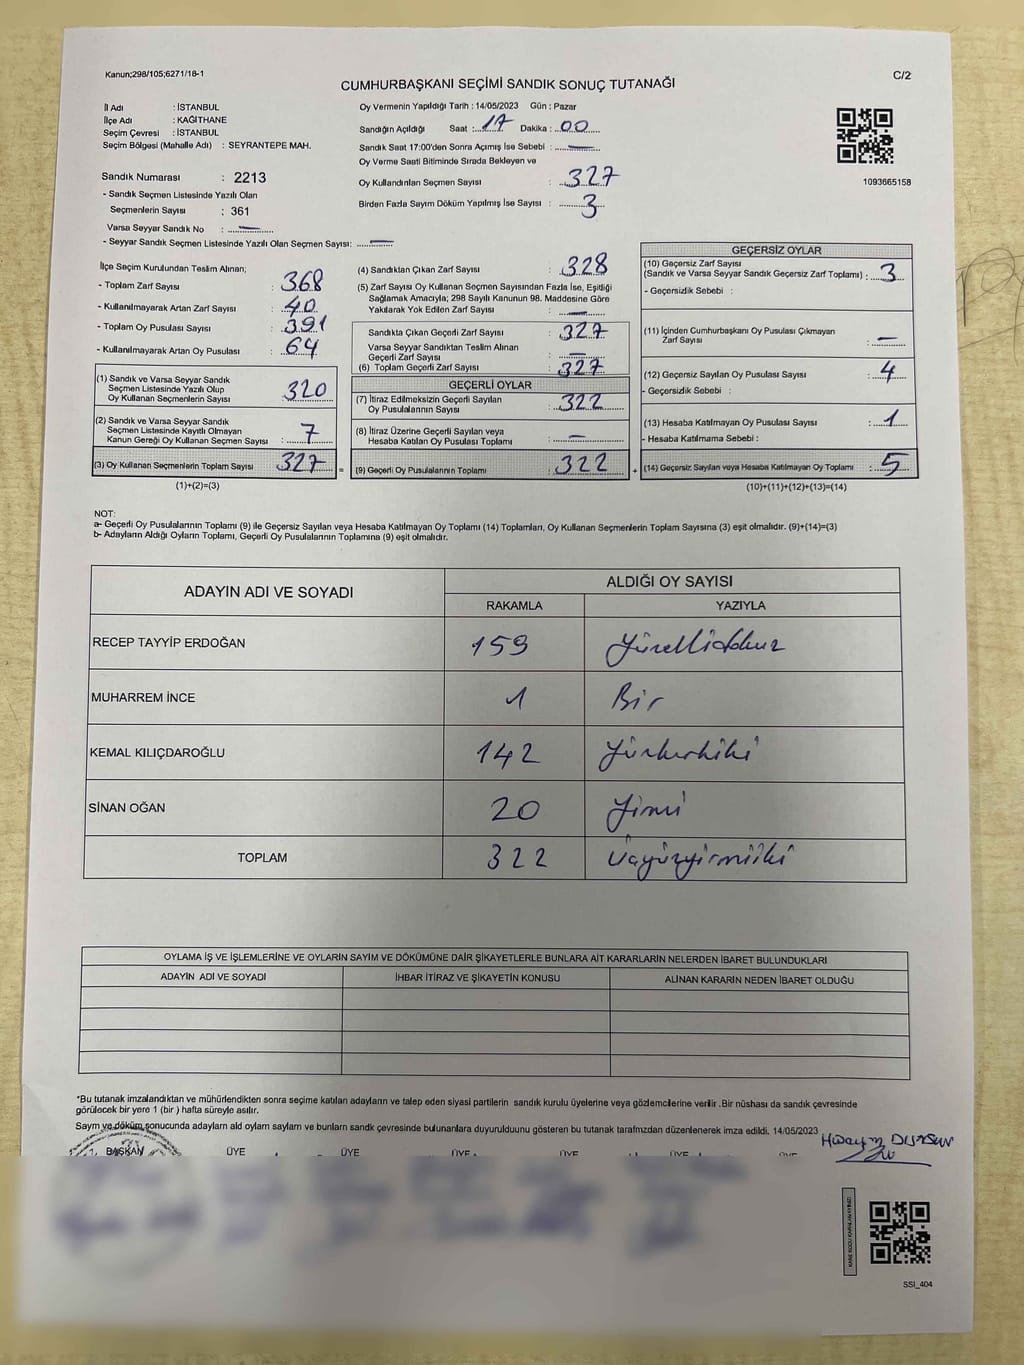 Kanun;298/105;6271/18-1
C/2
CUMHURBAŞKANI SEÇİMİ SANDIK SONUÇ TUTANAĞI
İl Adı : İSTANBUL
İlçe Adı : KAĞITHANE
Seçim Çevresi : İSTANBUL
Seçim Bölgesi (Mahalle Adı) : SEYRANTEPE MAH.
Sandık Numarası : 2213
- Sandık Seçmen Listesinde Yazılı Olan
Seçmenlerin Sayısı : 361
Varsa Seyyar Sandık No : —
- Seyyar Sandık Seçmen Listesinde Yazılı Olan Seçmen Sayısı: —
Oy Vermenin Yapıldığı Tarih : 14/05/2023 Gün : Pazar
Sandığın Açıldığı Saat : 17 Dakika : 00
Sandık Saat 17:00'den Sonra Açımış İse Sebebi : —
Oy Verme Saati Bitiminde Sırada Bekleyen ve
Oy Kullandırılan Seçmen Sayısı : 327
Birden Fazla Sayım Döküm Yapılmış İse Sayısı : 3
1093665158
İlçe Seçim Kurulundan Teslim Alınan;
- Toplam Zarf Sayısı : 368
- Kullanılmayarak Artan Zarf Sayısı : 40
- Toplam Oy Pusulası Sayısı : 391
- Kullanılmayarak Artan Oy Pusulası : 64
(1) Sandık ve Varsa Seyyar Sandık
Seçmen Listesinde Yazılı Olup
Oy Kullanan Seçmenlerin Sayısı : 320
(2) Sandık ve Varsa Seyyar Sandık
Seçmen Listesinde Kayıtlı Olmayan
Kanun Gereği Oy Kullanan Seçmen Sayısı : 7
(3) Oy Kullanan Seçmenlerin Toplam Sayısı : 327
(1)+(2)=(3)
(4) Sandıktan Çıkan Zarf Sayısı : 328
(5) Zarf Sayısı Oy Kullanan Seçmen Sayısından Fazla İse, Eşitliği
Sağlamak Amacıyla; 298 Sayılı Kanunun 98. Maddesine Göre
Yakılarak Yok Edilen Zarf Sayısı : —
Sandıkta Çıkan Geçerli Zarf Sayısı : 327
Varsa Seyyar Sandıktan Teslim Alınan
Geçerli Zarf Sayısı : —
(6) Toplam Geçerli Zarf Sayısı : 327
GEÇERLİ OYLAR
(7) İtiraz Edilmeksizin Geçerli Sayılan
Oy Pusulalarının Sayısı : 322
(8) İtiraz Üzerine Geçerli Sayılan veya
Hesaba Katılan Oy Pusulası Toplamı : —
= (9) Geçerli Oy Pusulalarının Toplamı : 322
GEÇERSİZ OYLAR
(10) Geçersiz Zarf Sayısı
(Sandık ve Varsa Seyyar Sandık Geçersiz Zarf Toplamı) : 3
- Geçersizlik Sebebi :
(11) İçinden Cumhurbaşkanı Oy Pusulası Çıkmayan
Zarf Sayısı : —
(12) Geçersiz Sayılan Oy Pusulası Sayısı : 4
- Geçersizlik Sebebi :
(13) Hesaba Katılmayan Oy Pusulası Sayısı : 1
- Hesaba Katılmama Sebebi :
+ (14) Geçersiz Sayılan veya Hesaba Katılmayan Oy Toplamı : 5
(10)+(11)+(12)+(13)=(14)
NOT:
a- Geçerli Oy Pusulalarının Toplamı (9) ile Geçersiz Sayılan veya Hesaba Katılmayan Oy Toplamı (14) Toplamları, Oy Kullanan Seçmenlerin Toplam Sayısına (3) eşit olmalıdır. (9)+(14)=(3)
b- Adayların Aldığı Oyların Toplamı, Geçerli Oy Pusulalarının Toplamına (9) eşit olmalıdır.
ADAYIN ADI VE SOYADI ALDIĞI OY SAYISI
RAKAMLA YAZIYLA
RECEP TAYYİP ERDOĞAN 159 Yüzellidokuz
MUHARREM İNCE 1 Bir
KEMAL KILIÇDAROĞLU 142 Yüzkırkiki
SİNAN OĞAN 20 Yirmi
TOPLAM 322 Üçyüzyirmiiki
OYLAMA İŞ VE İŞLEMLERİNE VE OYLARIN SAYIM VE DÖKÜMÜNE DAİR ŞİKAYETLERLE BUNLARA AİT KARARLARIN NELERDEN İBARET BULUNDUKLARI
ADAYIN ADI VE SOYADI İHBAR İTİRAZ VE ŞİKAYETİN KONUSU ALINAN KARARIN NEDEN İBARET OLDUĞU
*Bu tutanak imzalandıktan ve mühürlendikten sonra seçime katılan adayların ve talep eden siyasi partilerin sandık kurulu üyelerine veya gözlemcilerine verilir .Bir nüshası da sandık çevresinde
görülecek bir yere 1 (bir ) hafta süreyle asılır.
Sayım ve döküm sonucunda adayların ald oyların sayıları ve bunların sandk çevresinde bulunanlara duyurulduunu gösteren bu tutanak tarafımzdan düzenlenerek imza edildi. 14/05/2023
BAŞKAN ÜYE ÜYE ÜYE ÜYE ÜYE ÜYE
SSI_404